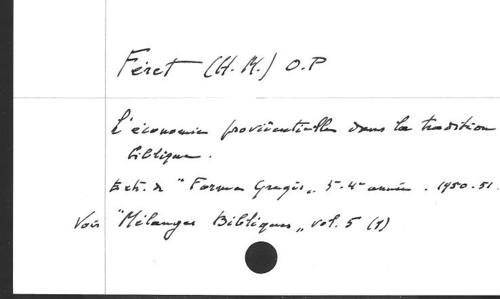 Féret (H. M.) O.P
L'économie providentielle dans la tradition
biblique.
Extr. de "Forma Gregis„ 3e-4e année. 1950-51.
Voir "Mélanges Bibliques„ vol. 5 (1)